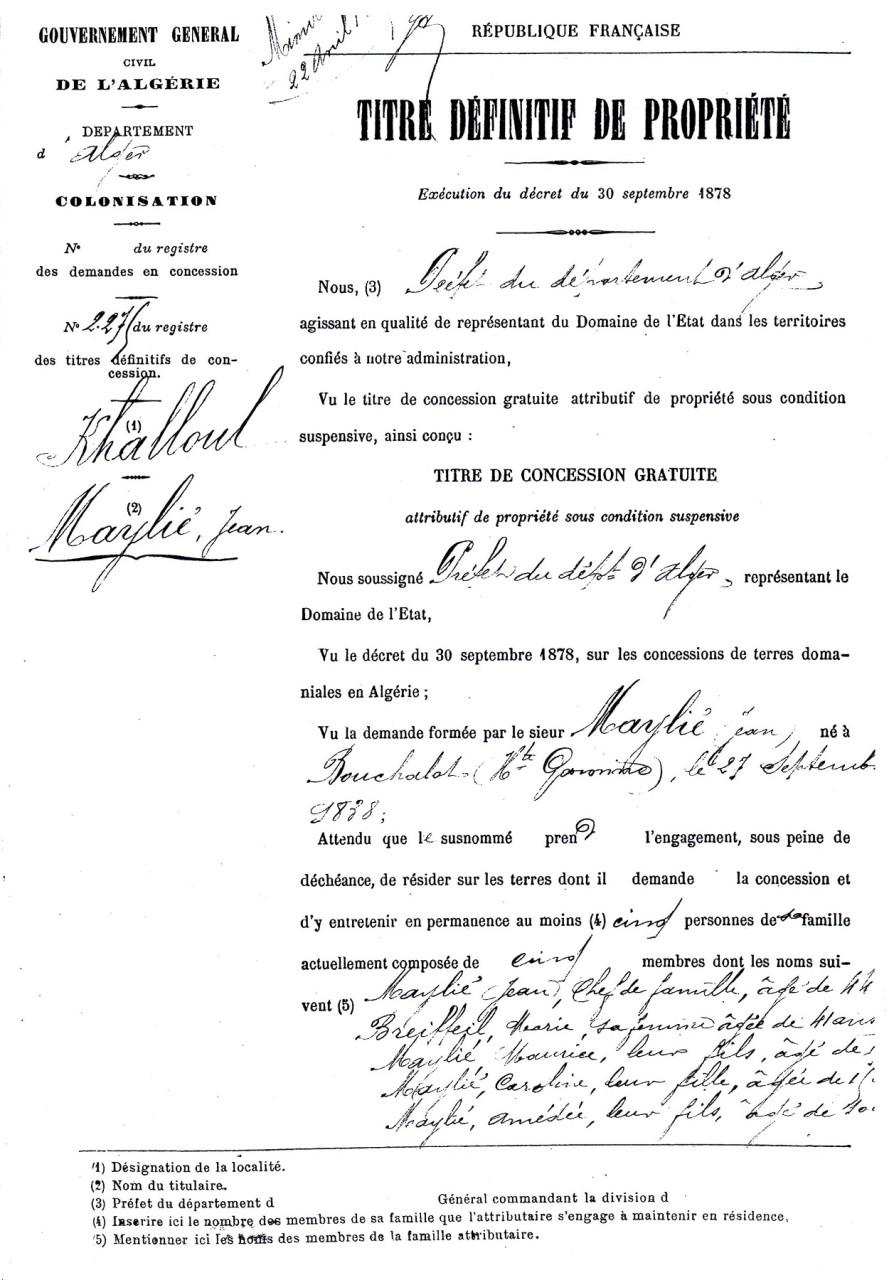 GOUVERNEMENT GENERAL
CIVIL
DE L'ALGÉRIE
DEPARTEMENT
d Alger
COLONISATION
N° du registre
des demandes en concession
N° 2.27 du registre
des titres définitifs de con-
cession.
(1)
Khalloul
(2)
Maylié, Jean.
22 Avril
RÉPUBLIQUE FRANÇAISE
TITRE DÉFINITIF DE PROPRIÉTÉ
Exécution du décret du 30 septembre 1878
Nous, (3) Préfet du département d'Alger
agissant en qualité de représentant du Domaine de l'Etat dans les territoires
confiés à notre administration,
Vu le titre de concession gratuite attributif de propriété sous condition
suspensive, ainsi conçu :
TITRE DE CONCESSION GRATUITE
attributif de propriété sous condition suspensive
Nous soussigné Préfet du dépt d'Alger, représentant le
Domaine de l'Etat,
Vu le décret du 30 septembre 1878, sur les concessions de terres doma-
niales en Algérie ;
Vu la demande formée par le sieur Maylié (Jean) né à
Bouchalot (Hte Garonne), le 27 Septemb
1838;
Attendu que le susnommé prend l'engagement, sous peine de
déchéance, de résider sur les terres dont il demande la concession et
d'y entretenir en permanence au moins (4) cinq personnes de sa famille
actuellement composée de cinq membres dont les noms sui-
vent (5) Maylié (Jean), Chef de famille, âgé de 44
Breiffeil, Marie, sa femme âgée de 41 ans
Maylié, Maurice, leur fils, âgé de
Maylié, Caroline, leur fille, âgée de
Maylié, Amédée, leur fils, âgé de 10
(1) Désignation de la localité.
(2) Nom du titulaire.
(3) Préfet du département d Général commandant la division d
(4) Inscrire ici le nombre des membres de sa famille que l'attributaire s'engage à maintenir en résidence,
(5) Mentionner ici les noms des membres de la famille attributaire.